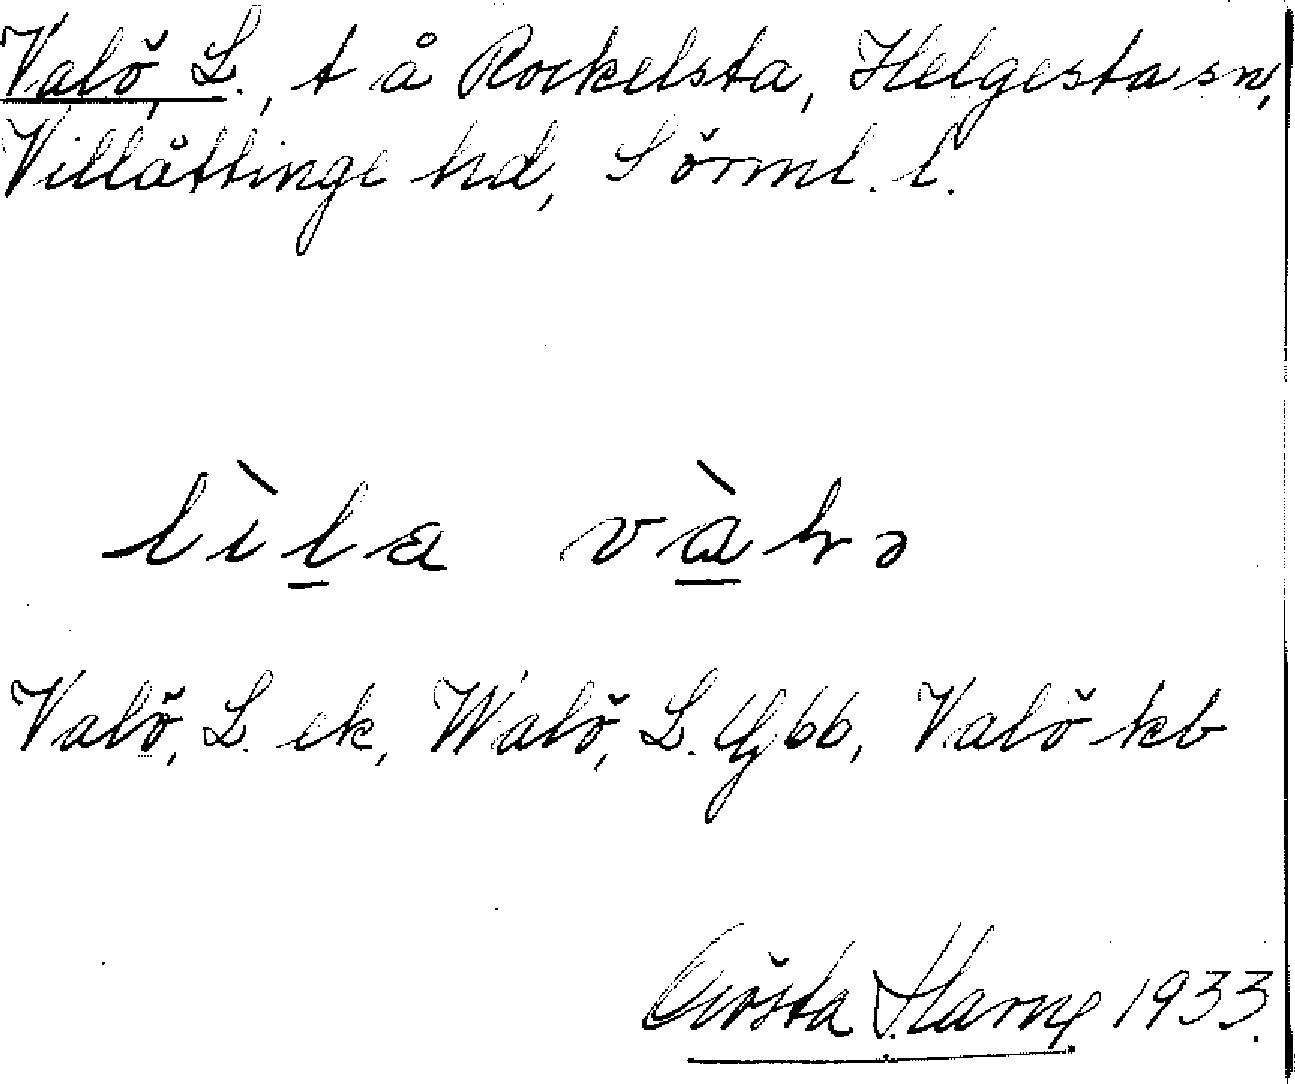 Valö, L., t å Rockelsta, Helgesta sn,
Villåttinge hd, Sörml. l.
lìla
Valö, L. ek, Walö, L. Gjbb, Valö kb
Gösta Härne 1933.